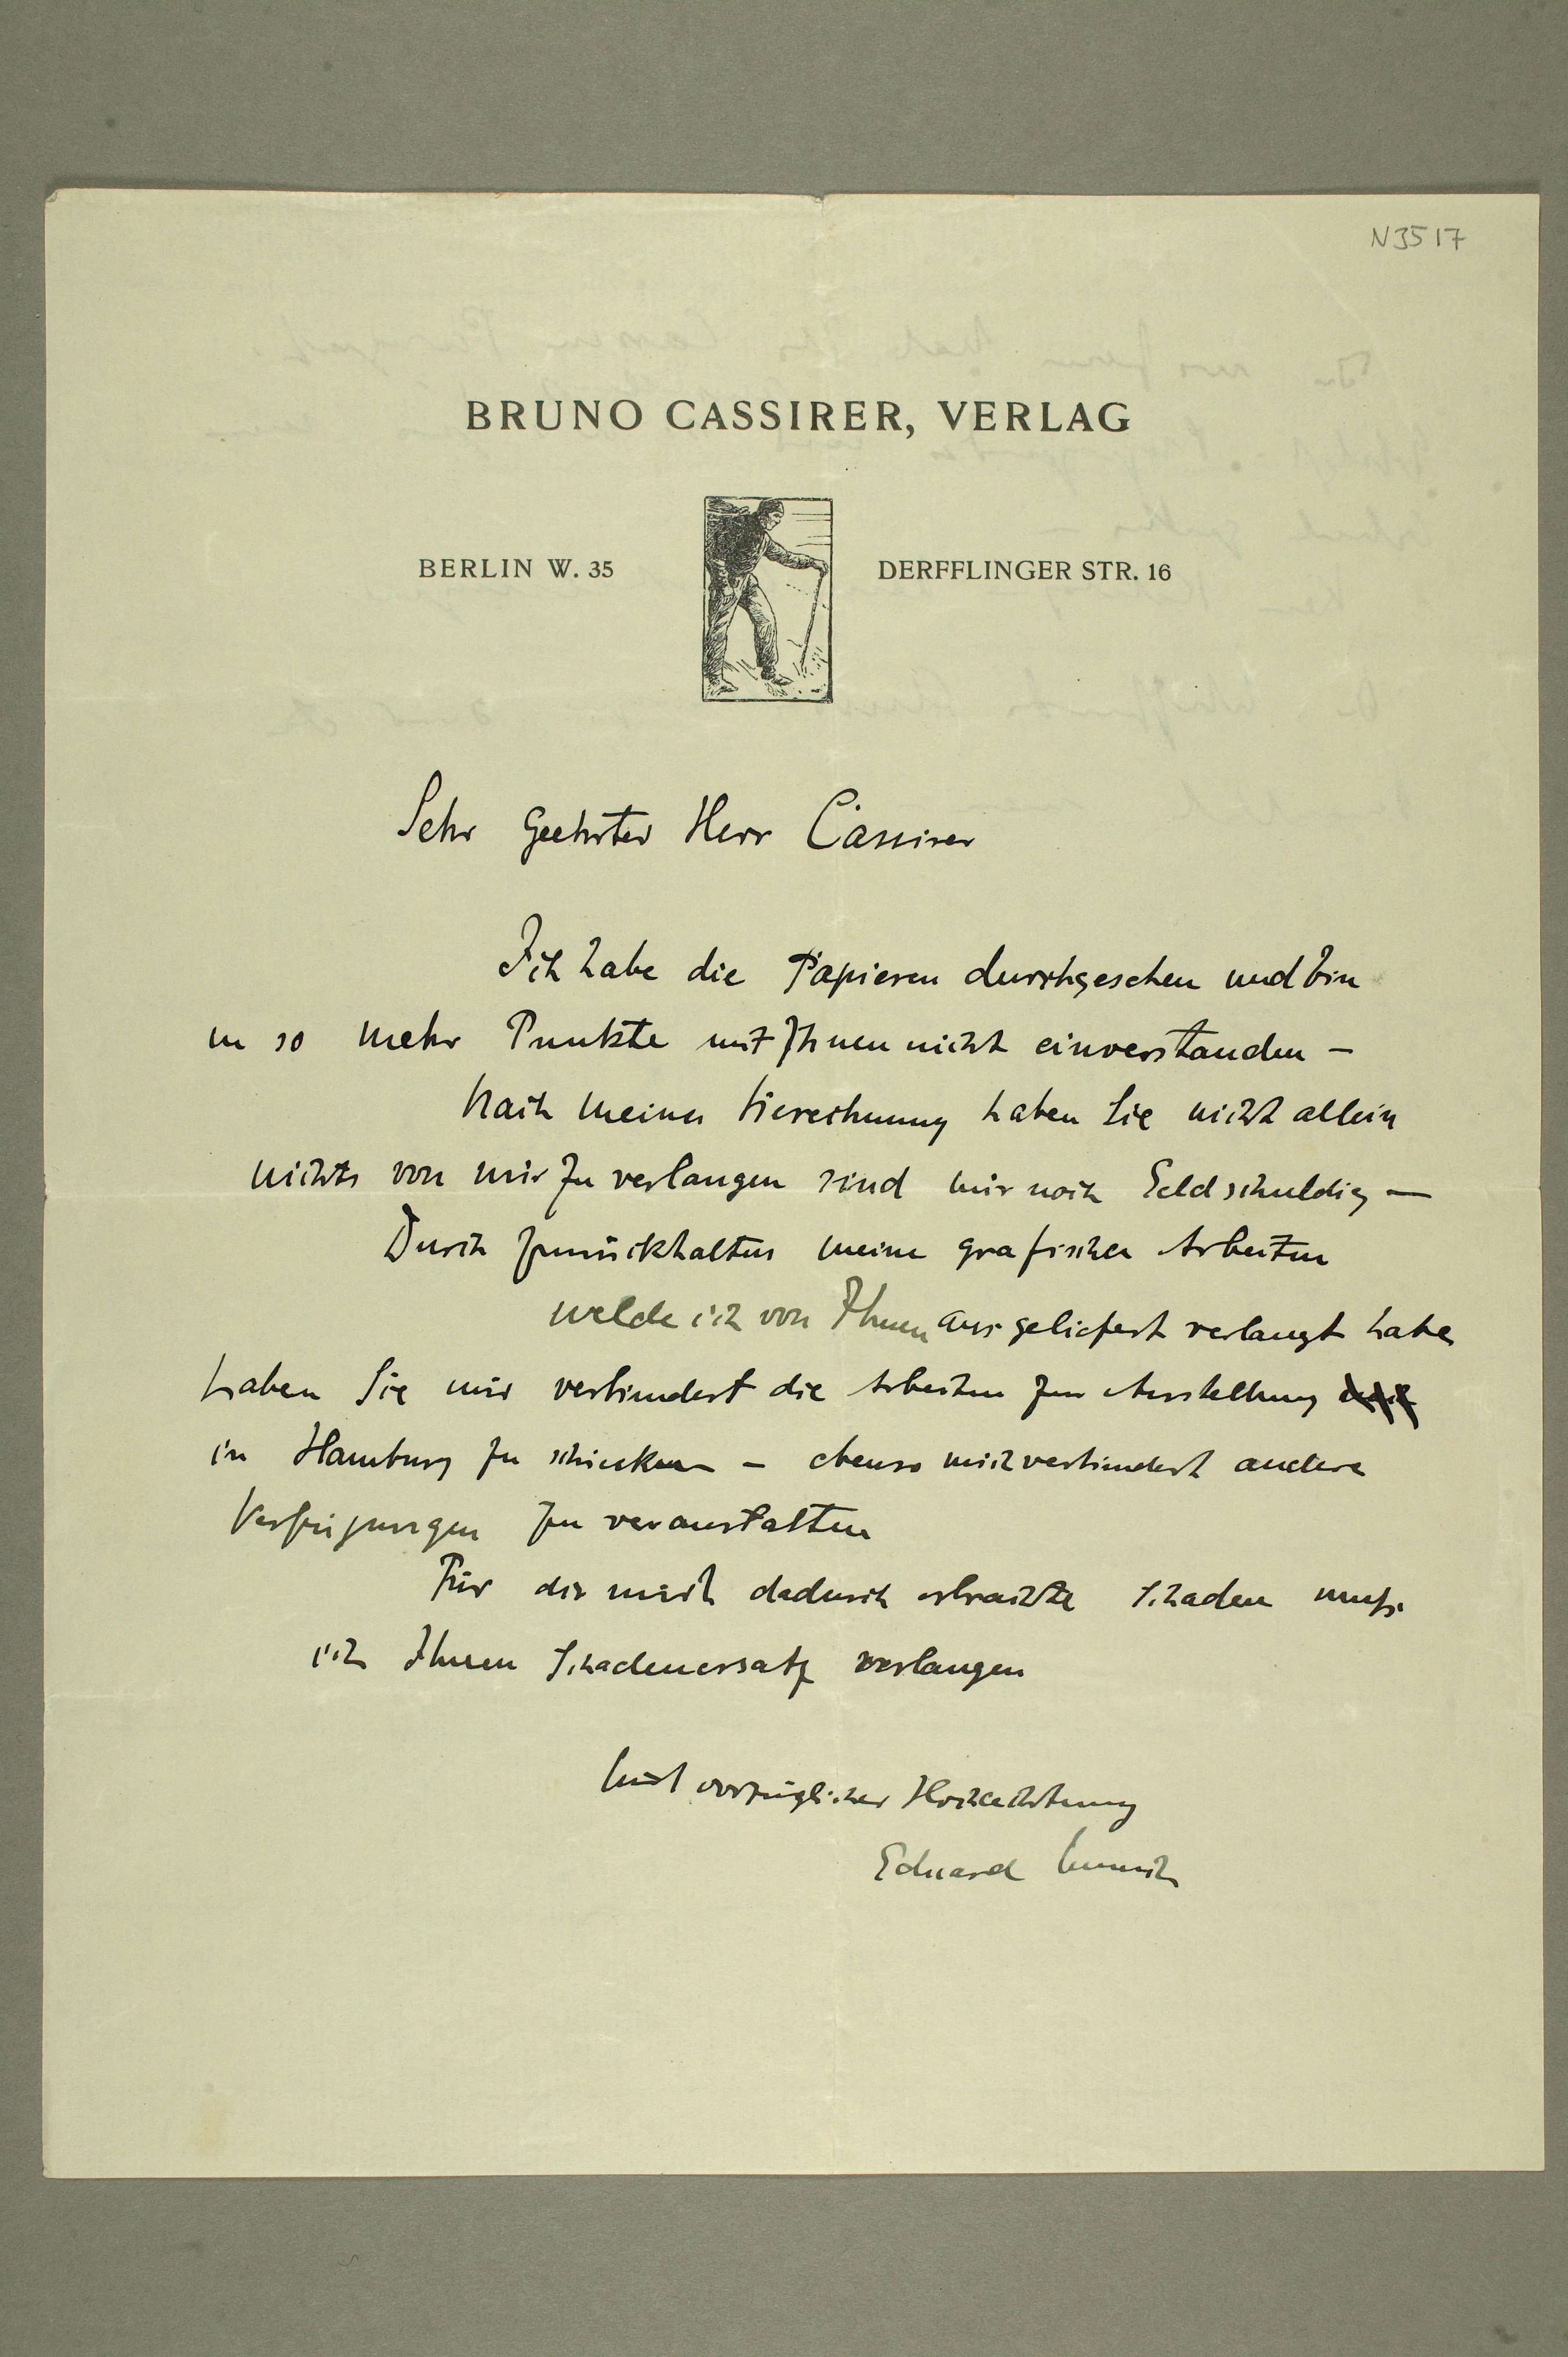 N3517
BRUNO CASSIRER, VERLAG
BERLIN W. 35
DERFFLINGER STR. 16
Sehr Geehrter Herr Cassirer
Ich habe die Papieren durchgesehen und bin
in so mehr Punkte mit Ihnen nicht einverstanden –
Nach meiner haben Sie nicht allein
nichts von mir zu verlangen sind mir noch Geld schuldig –
Durch zurückhalten meine grafischen Arbeiten
welche ich von Ihnen ausgeliefert verlangt habe
haben Sie mir verhindert die Arbeiten zur Ausstellung
in Hamburg zu schicken – ebenso mich verhindert andere
Verfügungen zu veranstalten
Für die mich dadurch Schaden muß
ich Ihnen Schadenersatz verlangen
Mit vorzüglicher Hochachtung
Eduard Munch